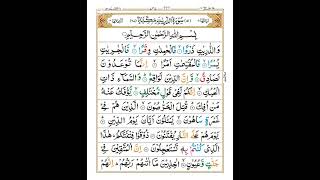 سُوْرَةُ الذّٰرِيٰتِ مَكِّيَّةٌ
بِسْمِ اللّٰهِ الرَّحْمٰنِ الرَّحِيْمِ
وَالذّٰرِيٰتِ ذَرْوًا ۙ فَالْحٰمِلٰتِ وِقْرًا ۙ فَالْجٰرِيٰتِ
يُسْرًا ۙ فَالْمُقَسِّمٰتِ اَمْرًا ۙ اِنَّمَا تُوْعَدُوْنَ
لَصَادِقٌ ۙ وَّاِنَّ الدِّيْنَ لَوَاقِعٌ ۙ وَالسَّمَآءِ ذَاتِ
الْحُبُكِ ۙ اِنَّكُمْ لَفِيْ قَوْلٍ مُّخْتَلِفٍ ۙ يُّؤْفَكُ عَنْهُ
مَنْ اُفِكَ ۙ قُتِلَ الْخَرّٰصُوْنَ ۙ الَّذِيْنَ هُمْ فِيْ
غَمْرَةٍ سَاهُوْنَ ۙ يَسْـَٔلُوْنَ اَيَّانَ يَوْمُ الدِّيْنِ ۙ
يَوْمَ هُمْ عَلَى النَّارِ يُفْتَنُوْنَ ۙ ذُوْقُوْا فِتْنَتَكُمْ ؕ هٰذَا
الَّذِيْ كُنْتُمْ بِهٖ تَسْتَعْجِلُوْنَ ۙ اِنَّ الْمُتَّقِيْنَ فِيْ
جَنّٰتٍ وَّعُيُوْنٍ ۙ اٰخِذِيْنَ مَاۤ اٰتٰىهُمْ رَبُّهُمْ ؕ اِنَّهُمْ